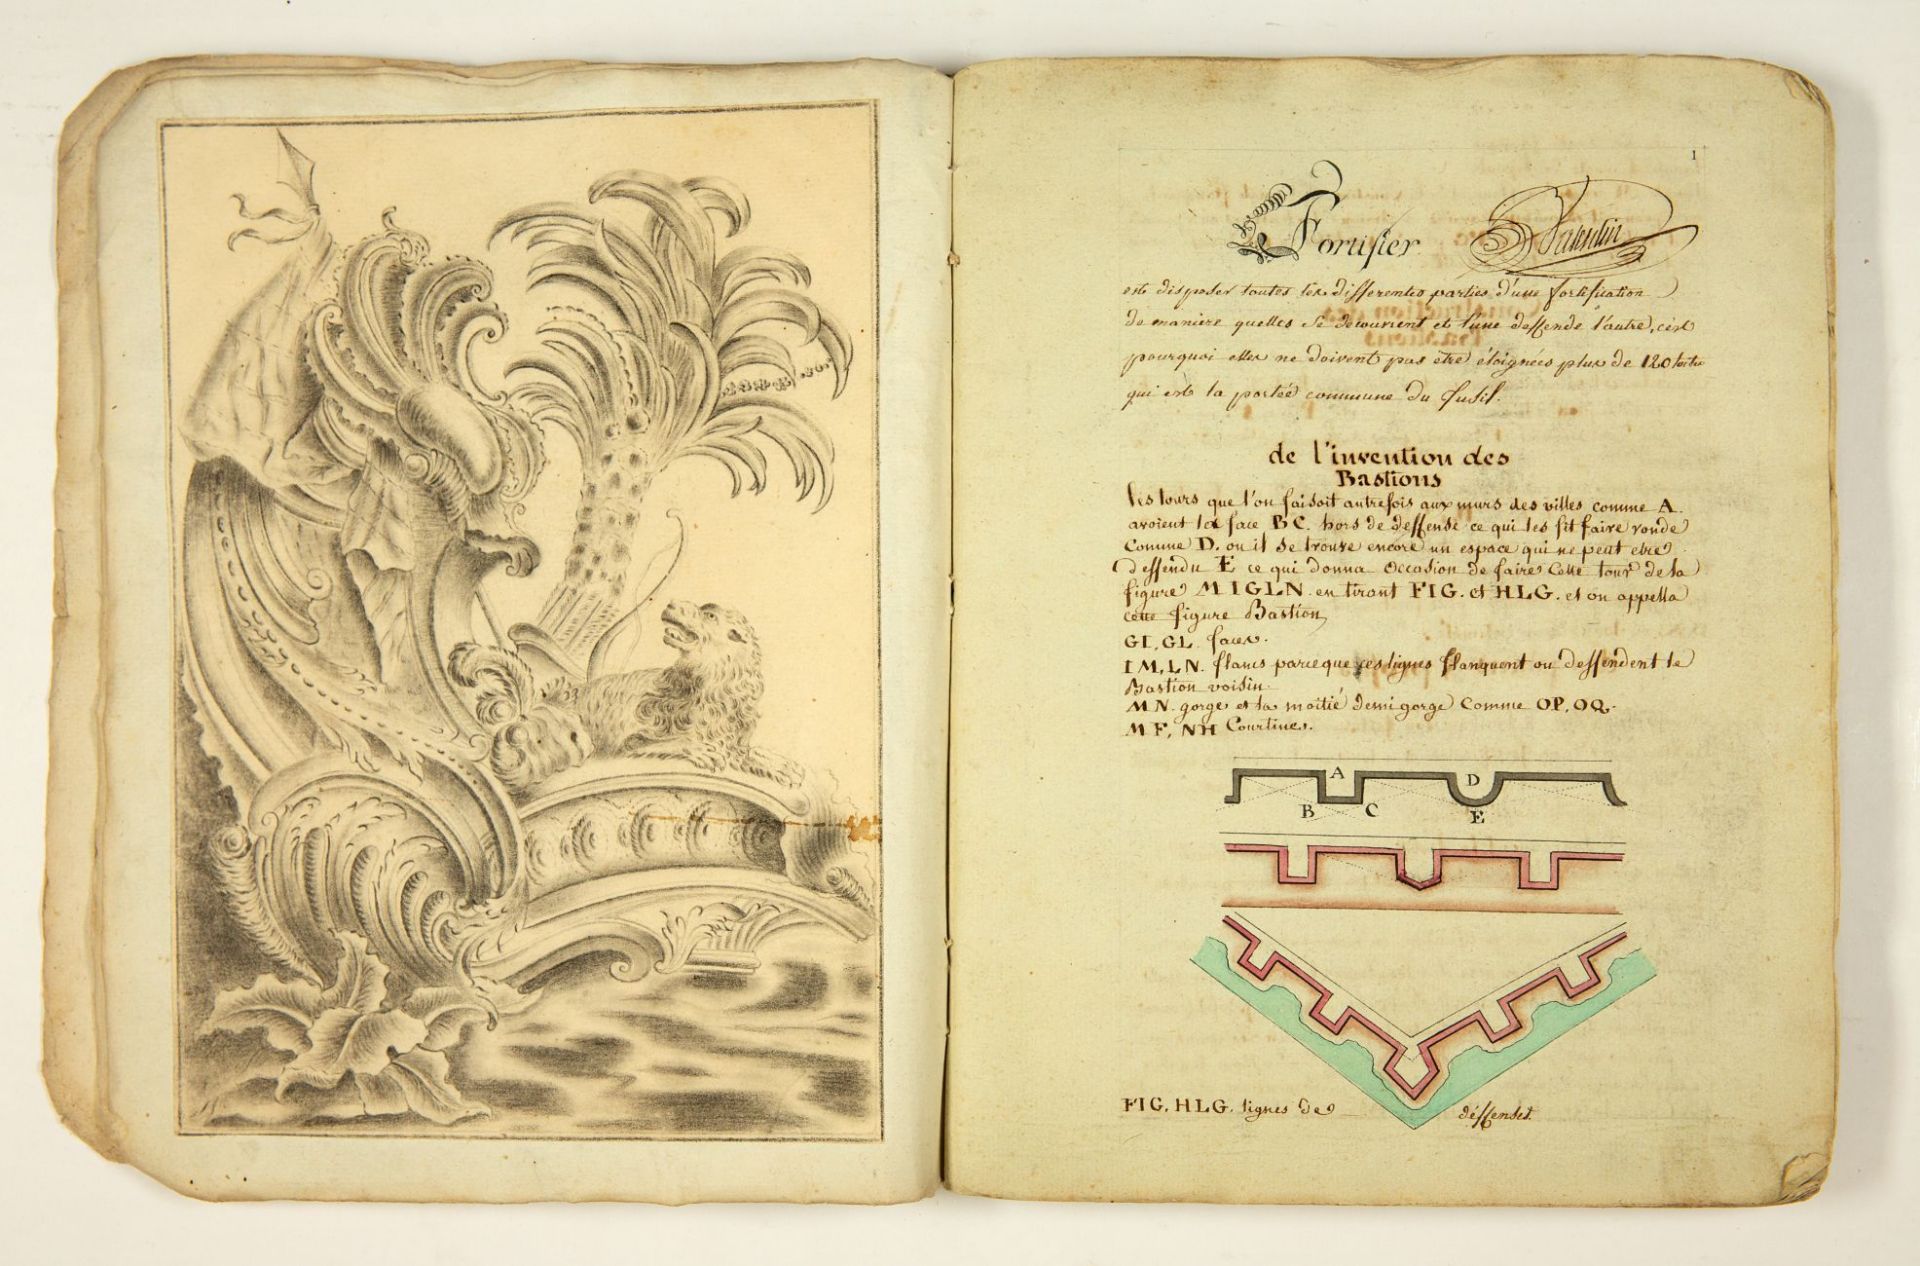 1
Fortifier Valentin
est disposer toutes les differentes parties d'une fortification
de maniere quelles se decouvrent et l'une deffende l'autre, c'est
pourquoi elles ne doivent pas etre éloignées plus de 120 toises
qui est la portée commune du fusil.
de l'invention des
Bastions
les tours que l'on faisoit autrefois aux murs des villes comme A.
avoient la face BC. hors de deffense ce qui les fit faire ronde
comme D. ou il se trouve encore un espace qui ne peut etre
deffendu E ce qui donna occasion de faire cette tour de la
figure MIGLN. en tirant FIG. et HLG. et on appella
cette figure Bastion
GI, GL. faces.
IM, LN. flancs parceque ces lignes flanquent ou deffendent le
Bastion voisin.
MN. gorge et la moitié demi gorge comme OP, OQ.
MF, NH Courtines.
A D
B C E
FIG. HLG. lignes de deffenses.